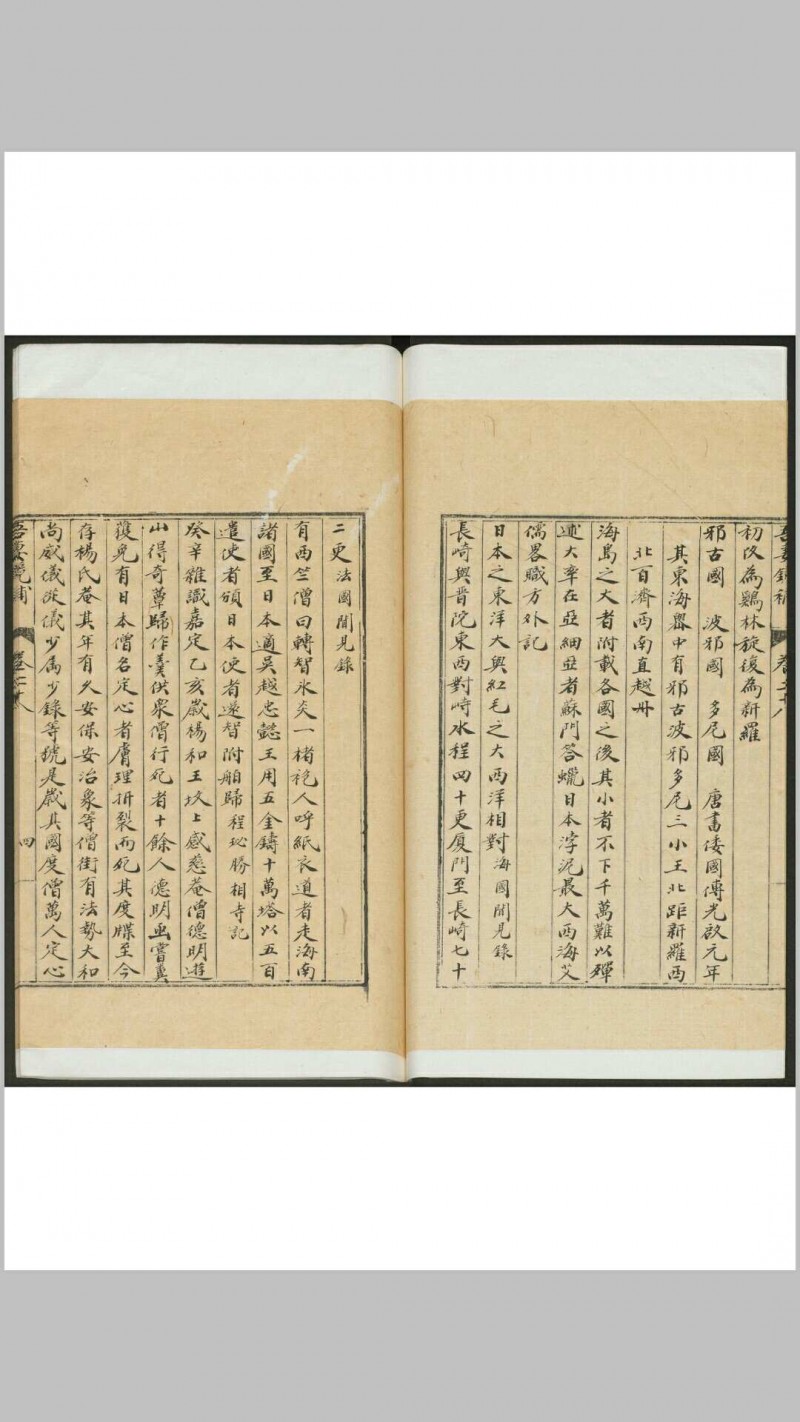 初改為鷄林旋復為新羅
邪古國　波邪國　多尼國　唐書倭國傳光啟元年
其東海嶴中有邪古波邪多尼三小王北距新羅西
北百濟西南直越州
海島之大者附載各國之後其小者不下千萬難以殫
述大率在亞細亞者蘇門答蠟日本浡泥最大西海艾
儒畧職方外記
日本之東洋大與紅毛之大西洋相對海國聞見錄
長崎與普沱東西對峙水程四十更厦門至長崎七十
二更法國聞見錄
有西竺僧曰轉智氷炎一楮袍人呼紙衣道者走海南
諸國至日本適吳越忠懿王用五金鑄十萬塔以五百
遣使者頒日本使者還智附舶歸程珌勝相寺記
癸辛雜識嘉定乙亥歲楊和王坟上感慈菴僧德明遊
山得奇蕈歸作羹供眾僧行死者十餘人德明亟嘗糞
獲免有日本僧名定心者膚理拆裂而死其度牒至今
存楊氏菴其年有久安保安治象等僧街有法勢大和
尚威儀從儀少属少録等號是歲其國度僧萬人定心
吾妻鏡補
卷二十八
四